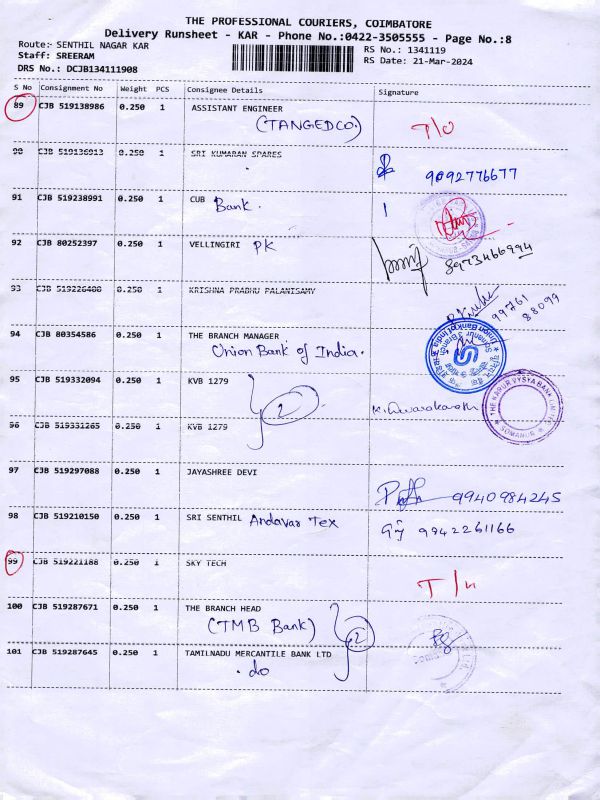 THE PROFESSIONAL COURIERS, COIMBATORE
Delivery Runsheet - KAR - Phone No.:0422-3505555 - Page No.:8
Route:- SENTHIL NAGAR KAR
Staff: SREERAM
DRS No.: DCJB134111908
RS No.: 1341119
RS Date: 21-Mar-2024
S No Consignment No Weight PCS Consignee Details Signature
89 CJB 519138986 0.250 1 ASSISTANT ENGINEER
(TANGEDCO.) T/O
90 CJB 519136913 0.250 1 SRI KUMARAN SPARES
9092776677
91 CJB 519238991 0.250 1 CUB Bank.
92 CJB 80252397 0.250 1 VELLINGIRI PK
8973466994
93 CJB 519226488 0.250 1 KRISHNA PRABHU PALANISAMY
99761
88099
94 CJB 80354586 0.250 1 THE BRANCH MANAGER
Union Bank of India.
Union Bank of India
95 CJB 519332094 0.250 1 KVB 1279
2
THE KARUR VYSYA BANK LIMITED
SOMANUR
96 CJB 519331265 0.250 1 KVB 1279
97 CJB 519297088 0.250 1 JAYASHREE DEVI
9940984245
98 CJB 519210150 0.250 1 SRI SENTHIL Andavar Tex
9942261166
99 CJB 519221188 0.250 1 SKY TECH
100 CJB 519287671 0.250 1 THE BRANCH HEAD
(TMB Bank) 2
101 CJB 519287645 0.250 1 TAMILNADU MERCANTILE BANK LTD
. do